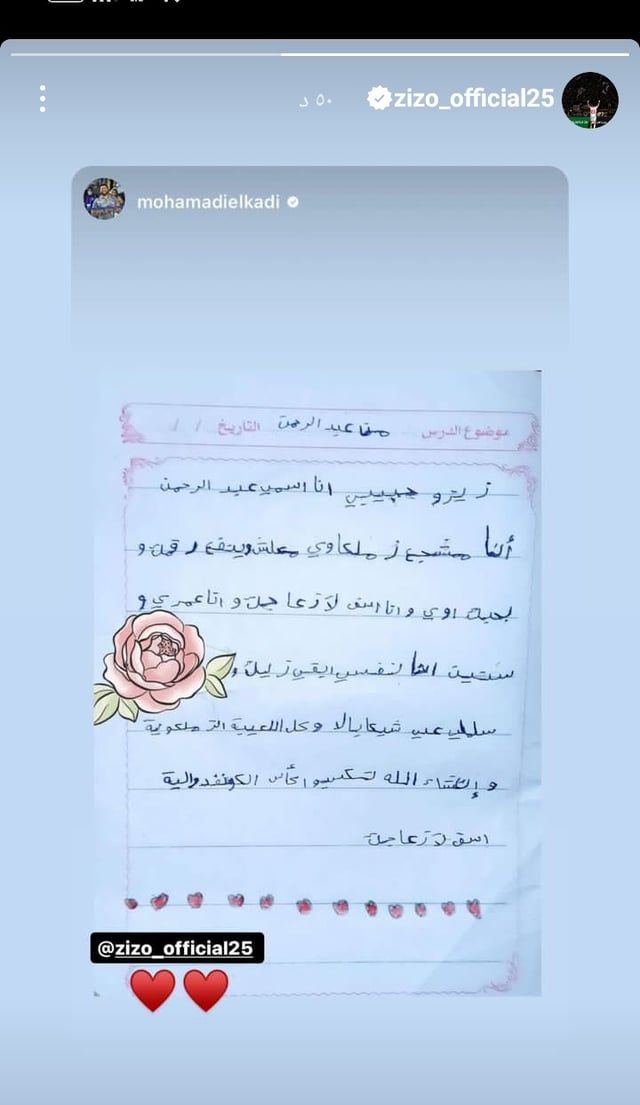 zizo_official25 ٥٠ د
mohamadielkadi
موضوع الدرس من عبد الرحمن التاريخ / /
زيزو حبيبي انا اسمي عبد الرحمن
أنا مشجع زملكاوي معلش وينفع رقمك و
بحبك اوي و انا اسف لازعاجك و انا عمري و
ستين انا لنفسي ابقي زيك و
سلملي علي شيكابالا وكل اللعيبة الزملكوية
و إنشاء الله تكسبو كأس الكونفدرالية
اسف لازعاجك
@zizo_official25